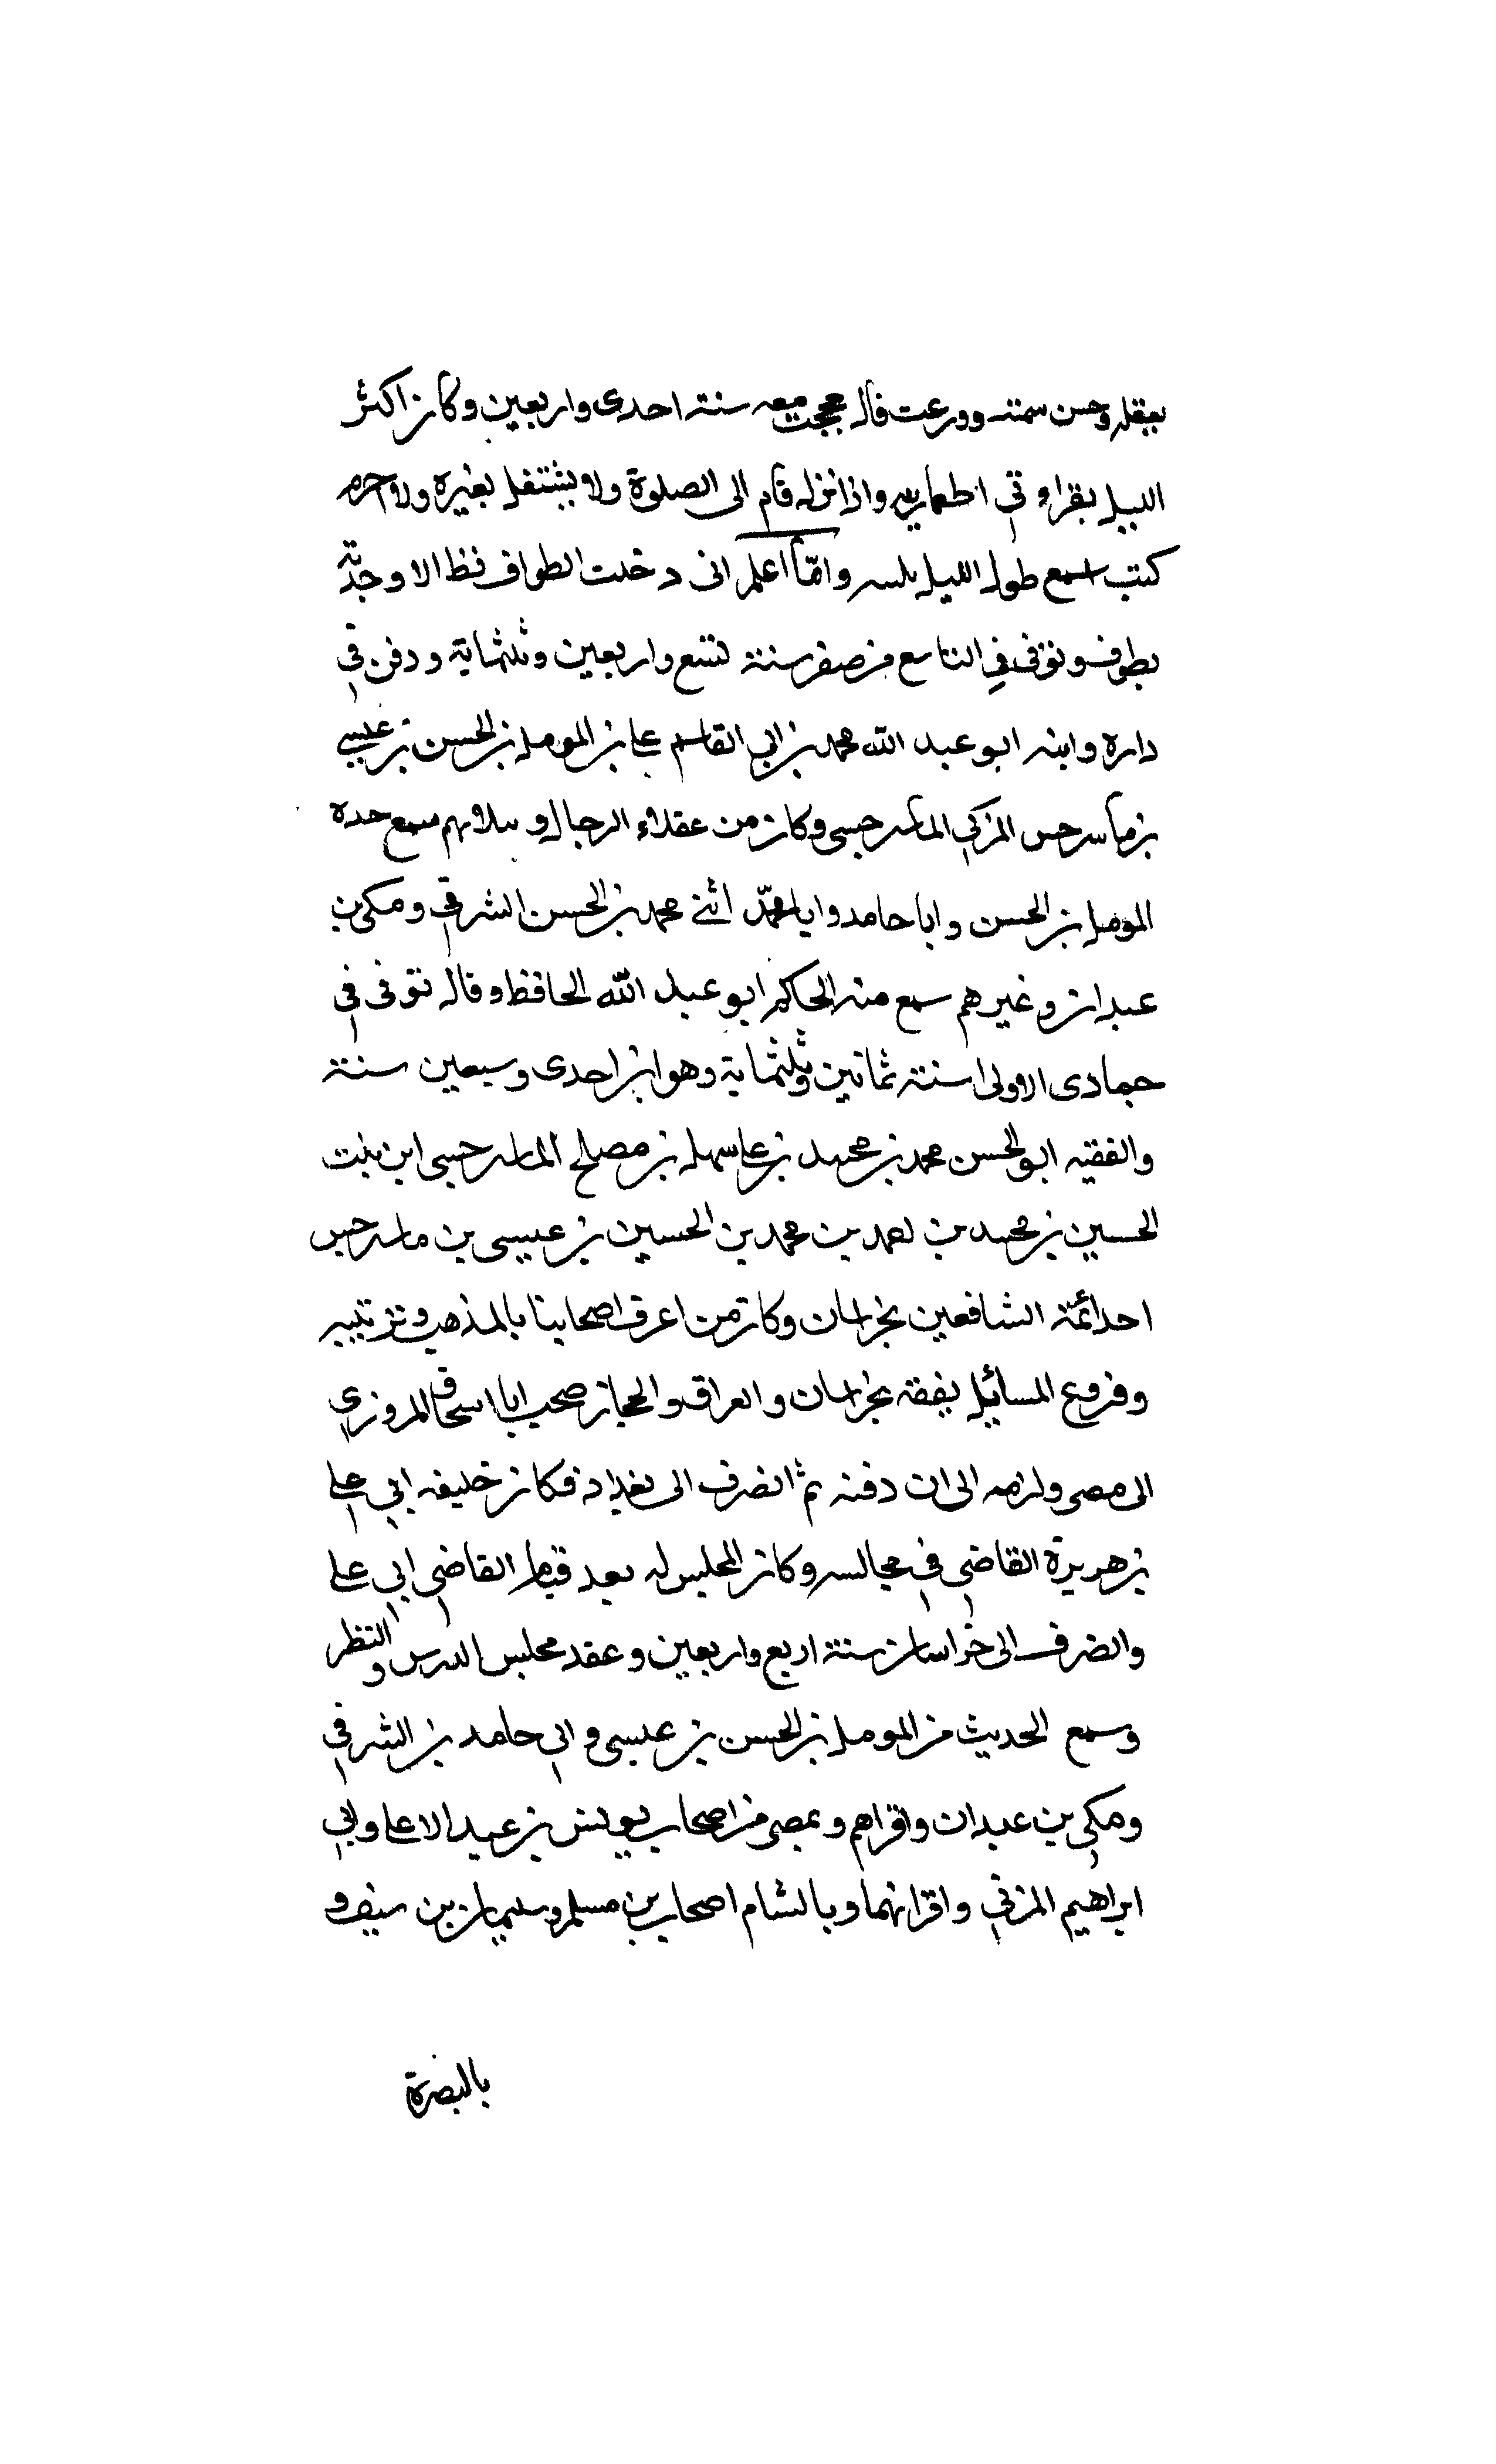 بعقله وحسن سمته وورعت قال حججت معه سنة احدى واربعين وكان اكثر
الليل يقراء في واذا نزل قام الى الصلوة ولا يشتغل بغيره ولا
كنت اسمع طول الليل واما اعلم انى دخلت الطواف قط الا وجدته
يطوف وتوفى في التاسع من صفر سنة تسع واربعين وثلثماية ودفن في
داره وابنه ابو عبد الله محمد بن ابي القاسم على بن المومل بن الحسن بن عيسى
بن ماسرجس المزكي الماسرجسى وكان من عقلاء الرجال و سمع جده
المومل بن الحسن وابا حامد وابا محمد محمد بن الحسن الشرقي ومكى بن
عبدان وغيرهم سمع منه الحاكم ابو عبد الله الحافظ وقال توفى في
جمادى الاولى سنة ثمانين وثلثماية وهو ابن احدى وسبعين سنة
والفقيه ابو الحسن محمد بن محمد بن على سهل بن مصلح الماسرجسى ابن بنت
الحسين بن محمد بن محمد بن الحسين بن عيسى بن ماسرجس
احد ائمة الشافعين بخراسان وكان من اعرف اصحابنا بالمذهب وترتيبه
وفروع المسائل بفقه بخراسان والعراق والحجاز صحب ابا اسحاق المروزي
الى مصر ولزمه الى ان دفنه ثم انصرف الى بغداد فكان خليفه ابي على
بن هريرة القاضي في مجالسه وكان المجلس له بعد قيام القاضي ابي على
وانصرف الى خراسان سنة اربع واربعين وعقد مجلس الدرس والنظر
وسمع الحديث من المومل بن الحسن بن عيسى وابي حامد بن الشرقي
ومكي بن عبدان واقراهم وبمصر من اصحاب يونس بن عبد الاعلى وابي
ابراهيم المزني واقرانهما وبالشام اصحاب بن مسلم وسليمان بن سيف و
بالبصرة